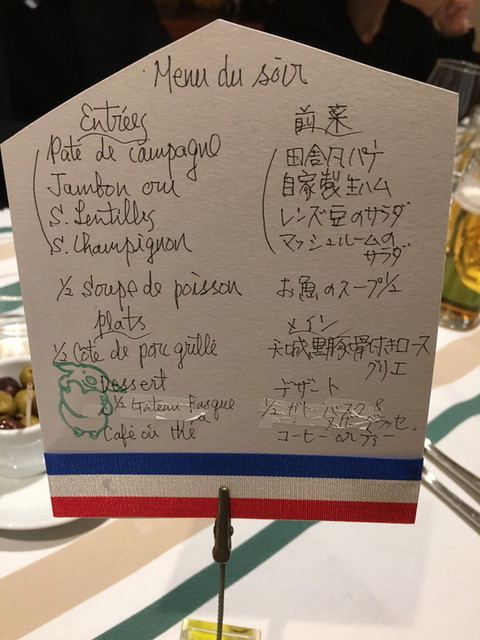 Menu du soir
Entrées
Pâté de campagne
Jambon cru
S. Lentilles
S. Champignon
1/2 Soupe de poisson
Plats
1/2 Côte de porc grillé
Dessert
1/2 Gateau Basque
Café ou thé
前菜
田舎風パテ
自家製生ハム
レンズ豆のサラダ
マッシュルームの
サラダ
お魚のスープ1/2
メイン
天城黒豚骨付きロース
グリエ
デザート
1/2 ガトーバスク &
コーヒー or